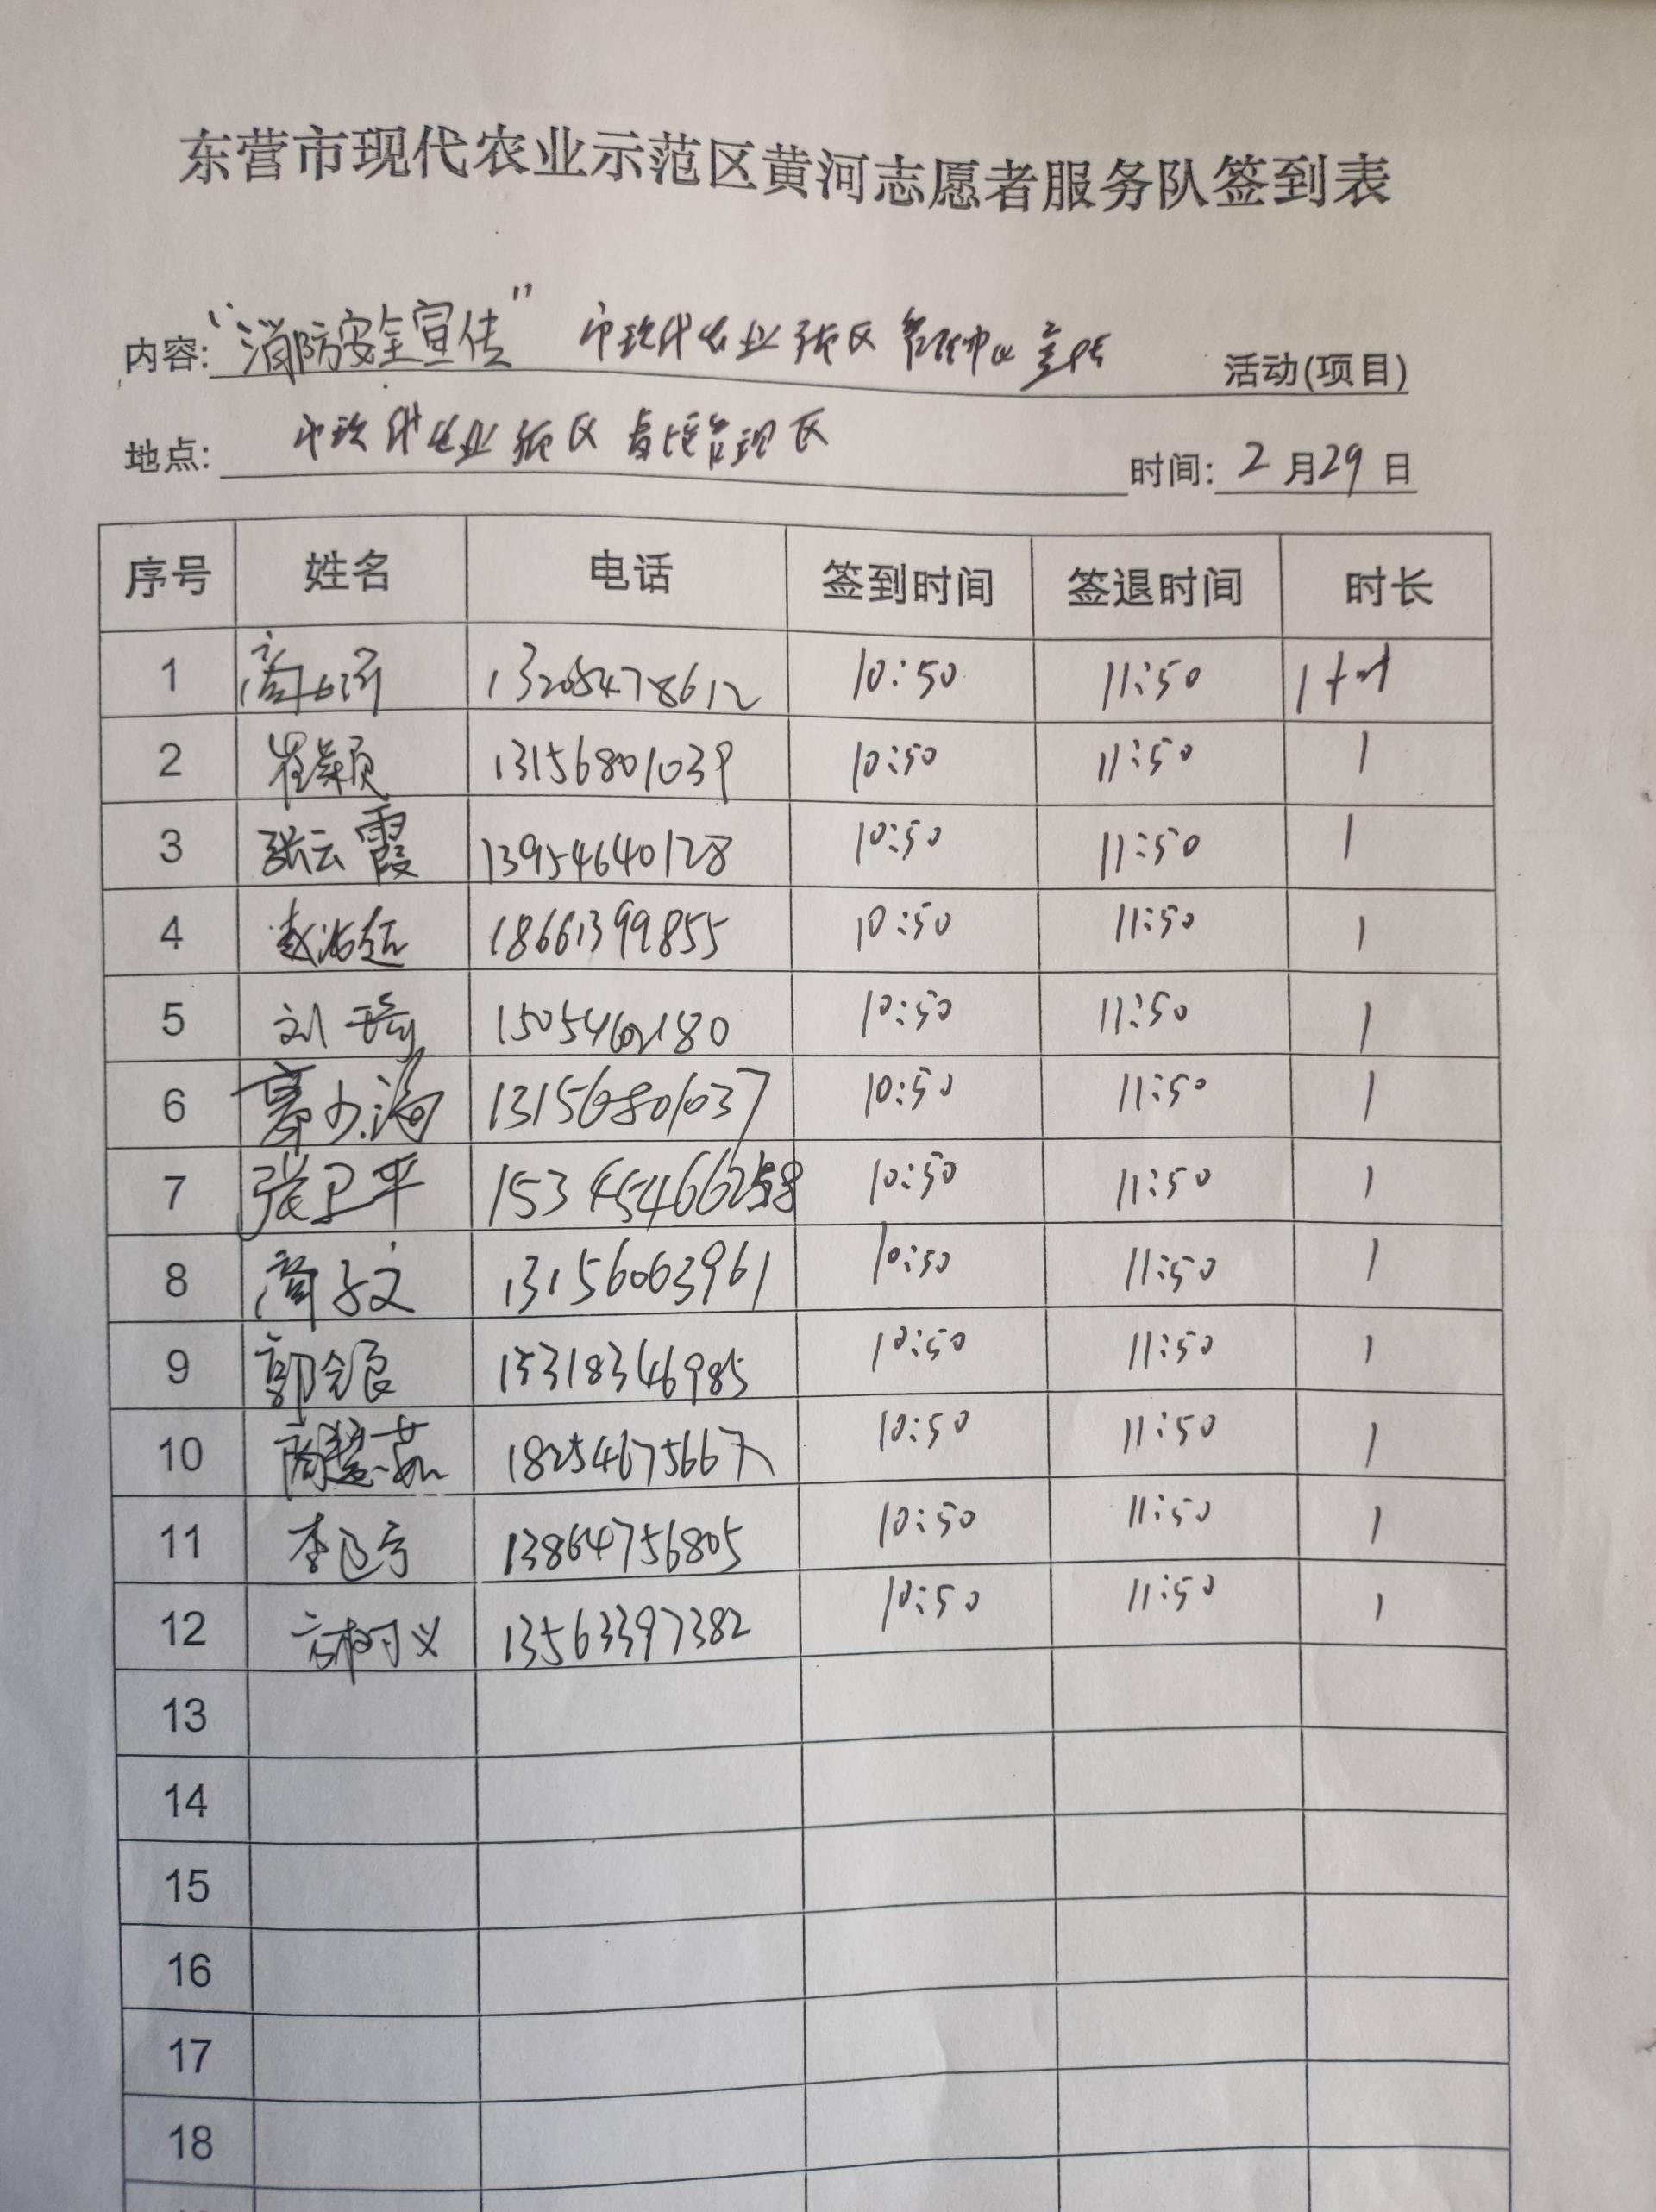 东营市现代农业示范区黄河志愿者服务队签到表
内容: “消防安全宣传” 市现代农业示范区管理中心 活动(项目)
地点: 市现代农业示范区 管理区 时间: 2 月 29 日
序号 姓名 电话 签到时间 签退时间 时长
1 13205478612 10:50 11:50 1小时
2 崔颖 13156801039 10:50 11:50 1
3 张云霞 13954640128 10:50 11:50 1
4 18661399855 10:50 11:50 1
5 刘琦 10:50 11:50 1
6 13156801037 10:50 11:50 1
7 张卫平 10:50 11:50 1
8 商子文 13156063961 10:50 11:50 1
9 15318346985 10:50 11:50 1
10 商慧茹 18254675667 10:50 11:50 1
11 13864756805 10:50 11:50 1
12 13563397382 10:50 11:50 1
13
14
15
16
17
18